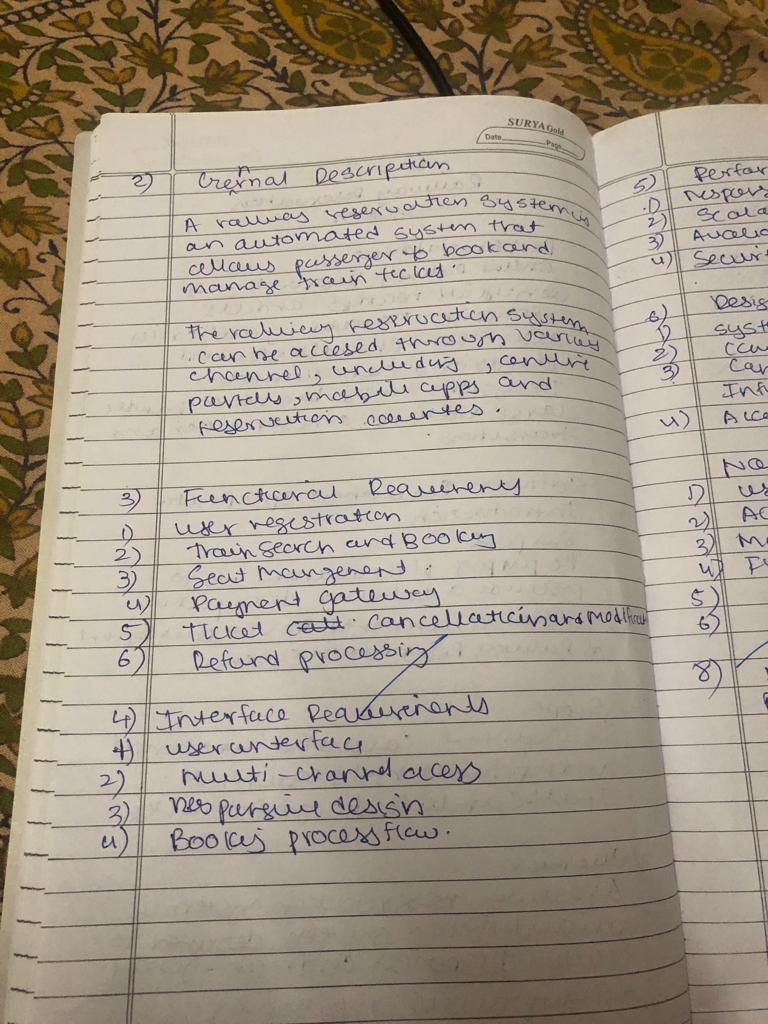 SURYA Gold
Date Page
2) General Description
A railway reservation system is
an automated system that
allows passenger to book and
manage train ticket.
The railway reservation system
can be accesed through various
channel, including, online
portals, mobile apps and
reservation counters.
3) Functional Requirements
1) user registration
2) Train search and Booking
3) Seat Mangement.
4) Payment gateway
5) Ticket cancellation and Modificat
6) Refund processing
4) Interface Requirements
1) user interface
2) multi-channel acess
3) responsive design
4) Booking process flow.
5) Perfor
1) respons
2) Scala
3) Availa
4) Securit
6) Desig
1) syst
2)
3)
Inf
4) Acc
1) us
2) Ac
3)
4)
5)
6)
8)